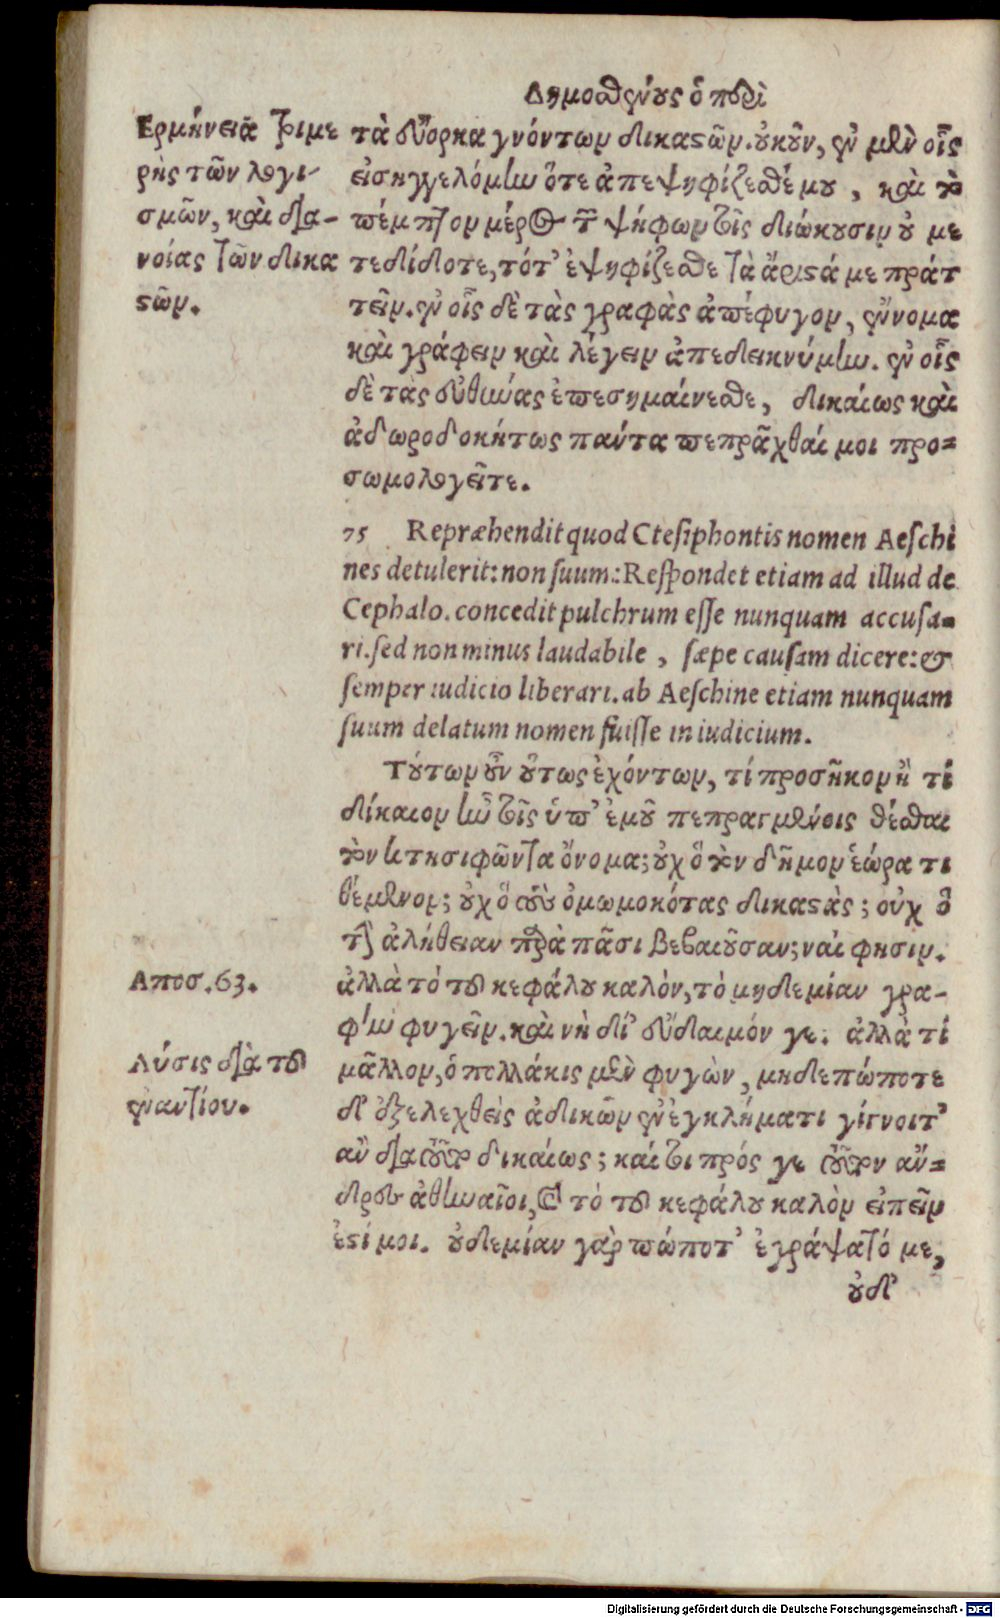 Δημοσθένους ὁ περὶ
Ερμήνεια τριμε
ρὴς τῶν λογι-
σμῶν, καὶ δια-
νοίας τῶν δικα
στῶν.
τὰ εὔορκα γνόντων δικαστῶν. οὐκοῦν, ἐν μὲν οἷς
εἰσηγγελόμην ὅτε ἀπεψηφίζεσθέ μου, καὶ τὸ
πέμπτον μέρος τῶν ψήφων τοῖς διώκουσιν οὐ με
τεδίδοτε, τότ' ἐψηφίζεσθε τὰ ἄριστά με πράτ
τειν. ἐν οἷς δὲ τὰς γραφὰς ἀπέφυγον, ἔννομα
καὶ γράφειν καὶ λέγειν ἀπεδεικνύμην. ἐν οἷς
δὲ τὰς εὐθύνας ἐπεσημαίνεσθε, δικαίως καὶ
ἀδωροδοκήτως πάντα πεπρᾶχθαί μοι προ=
σωμολογεῖτε.
75 Repræhendit quod Ctesiphontis nomen Aeschi
nes detulerit: non suum: Respondet etiam ad illud de
Cephalo. concedit pulchrum esse nunquam accusa=
ri. sed non minus laudabile, sæpe causam dicere: &
semper iudicio liberari. ab Aeschine etiam nunquam
suum delatum nomen fuisse in iudicium.
Τούτων οὖν οὕτως ἐχόντων, τί προσῆκον ἢ τί
δίκαιον ἦν τοῖς ὑπ' ἐμοῦ πεπραγμένοις θέσθαι
τὸν κτησιφῶντα ὄνομα; οὐχ ὃ τὸν δῆμον ἑώρα τι
θέμενον; οὐχ ὃ τοὺς ὀμωμοκότας δικαστὰς; οὐχ ὃ
τὴν ἀλήθειαν παρὰ πᾶσι βεβαιοῦσαν; ναί φησιν.
Αποσ. 63.
ἀλλὰ τὸ τοῦ κεφάλου καλόν, τὸ μηδεμίαν γρα-
φὴν φυγεῖν. καὶ νὴ δί' εὔδαιμόν γε. ἀλλὰ τί
Λύσις διὰ τοῦ
ἐναντίου.
μᾶλλον, ὁ πολλάκις μὲν φυγὼν, μηδεπώποτε
δ' ἐξελεχθεὶς ἀδικῶν ἐν ἐγκλήματι γίγνοιτ'
ἂν διὰ τοῦτο δικαίως; καί τι πρός γε τοῦτον ἄν=
δρες ἀθηναῖοι, καὶ τὸ τοῦ κεφάλου καλὸν εἰπεῖν
ἐστί μοι. οὐδεμίαν γὰρ πώποτ' ἐγράψατό με,
οὐδ'